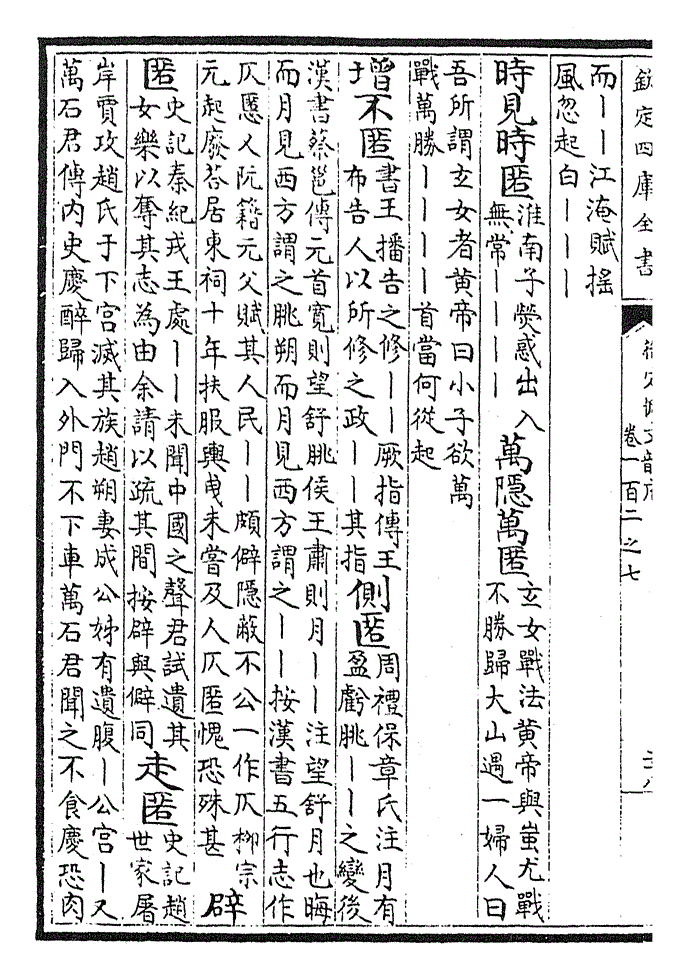 欽定四庫全書
御定佩文韻府
卷一百二之七
而｜｜江淹賦搖
風忽起白｜｜｜
時見時匿
淮南子熒惑出入
無常｜｜｜｜
萬隱萬匿
玄女戰法黄帝與蚩尤戰
不勝歸大山遇一婦人曰
吾所謂玄女者黄帝曰小子欲萬
戰萬勝｜｜｜｜首當何從起
增不匿
書王播告之修｜｜厥指傳王
布告人以所修之政｜｜其指
側匿
周禮保章氏注月有
盈虧朓｜｜之變後
漢書蔡邕傳元首寛則望舒朓侯王肅則月｜｜注望舒月也晦
而月見西方謂之朓朔而月見西方謂之｜｜按漢書五行志作
仄慝乂阮籍元父賦其人民｜｜頗僻隱蔽不公一作仄栁宗
元起廢荅居東祠十年扶服輿曵未嘗及人仄匿愧恐殊甚
辟
匿
史記秦紀戎王處｜｜未聞中國之聲君試遺其
女樂以奪其志為由余請以疏其間按辟與僻同
走匿
史記趙
世家屠
岸賈攻趙氏于下宫滅其族趙朔妻成公姊有遺腹｜公宫｜又
萬石君傳内史慶醉歸入外門不下車萬石君聞之不食慶恐肉